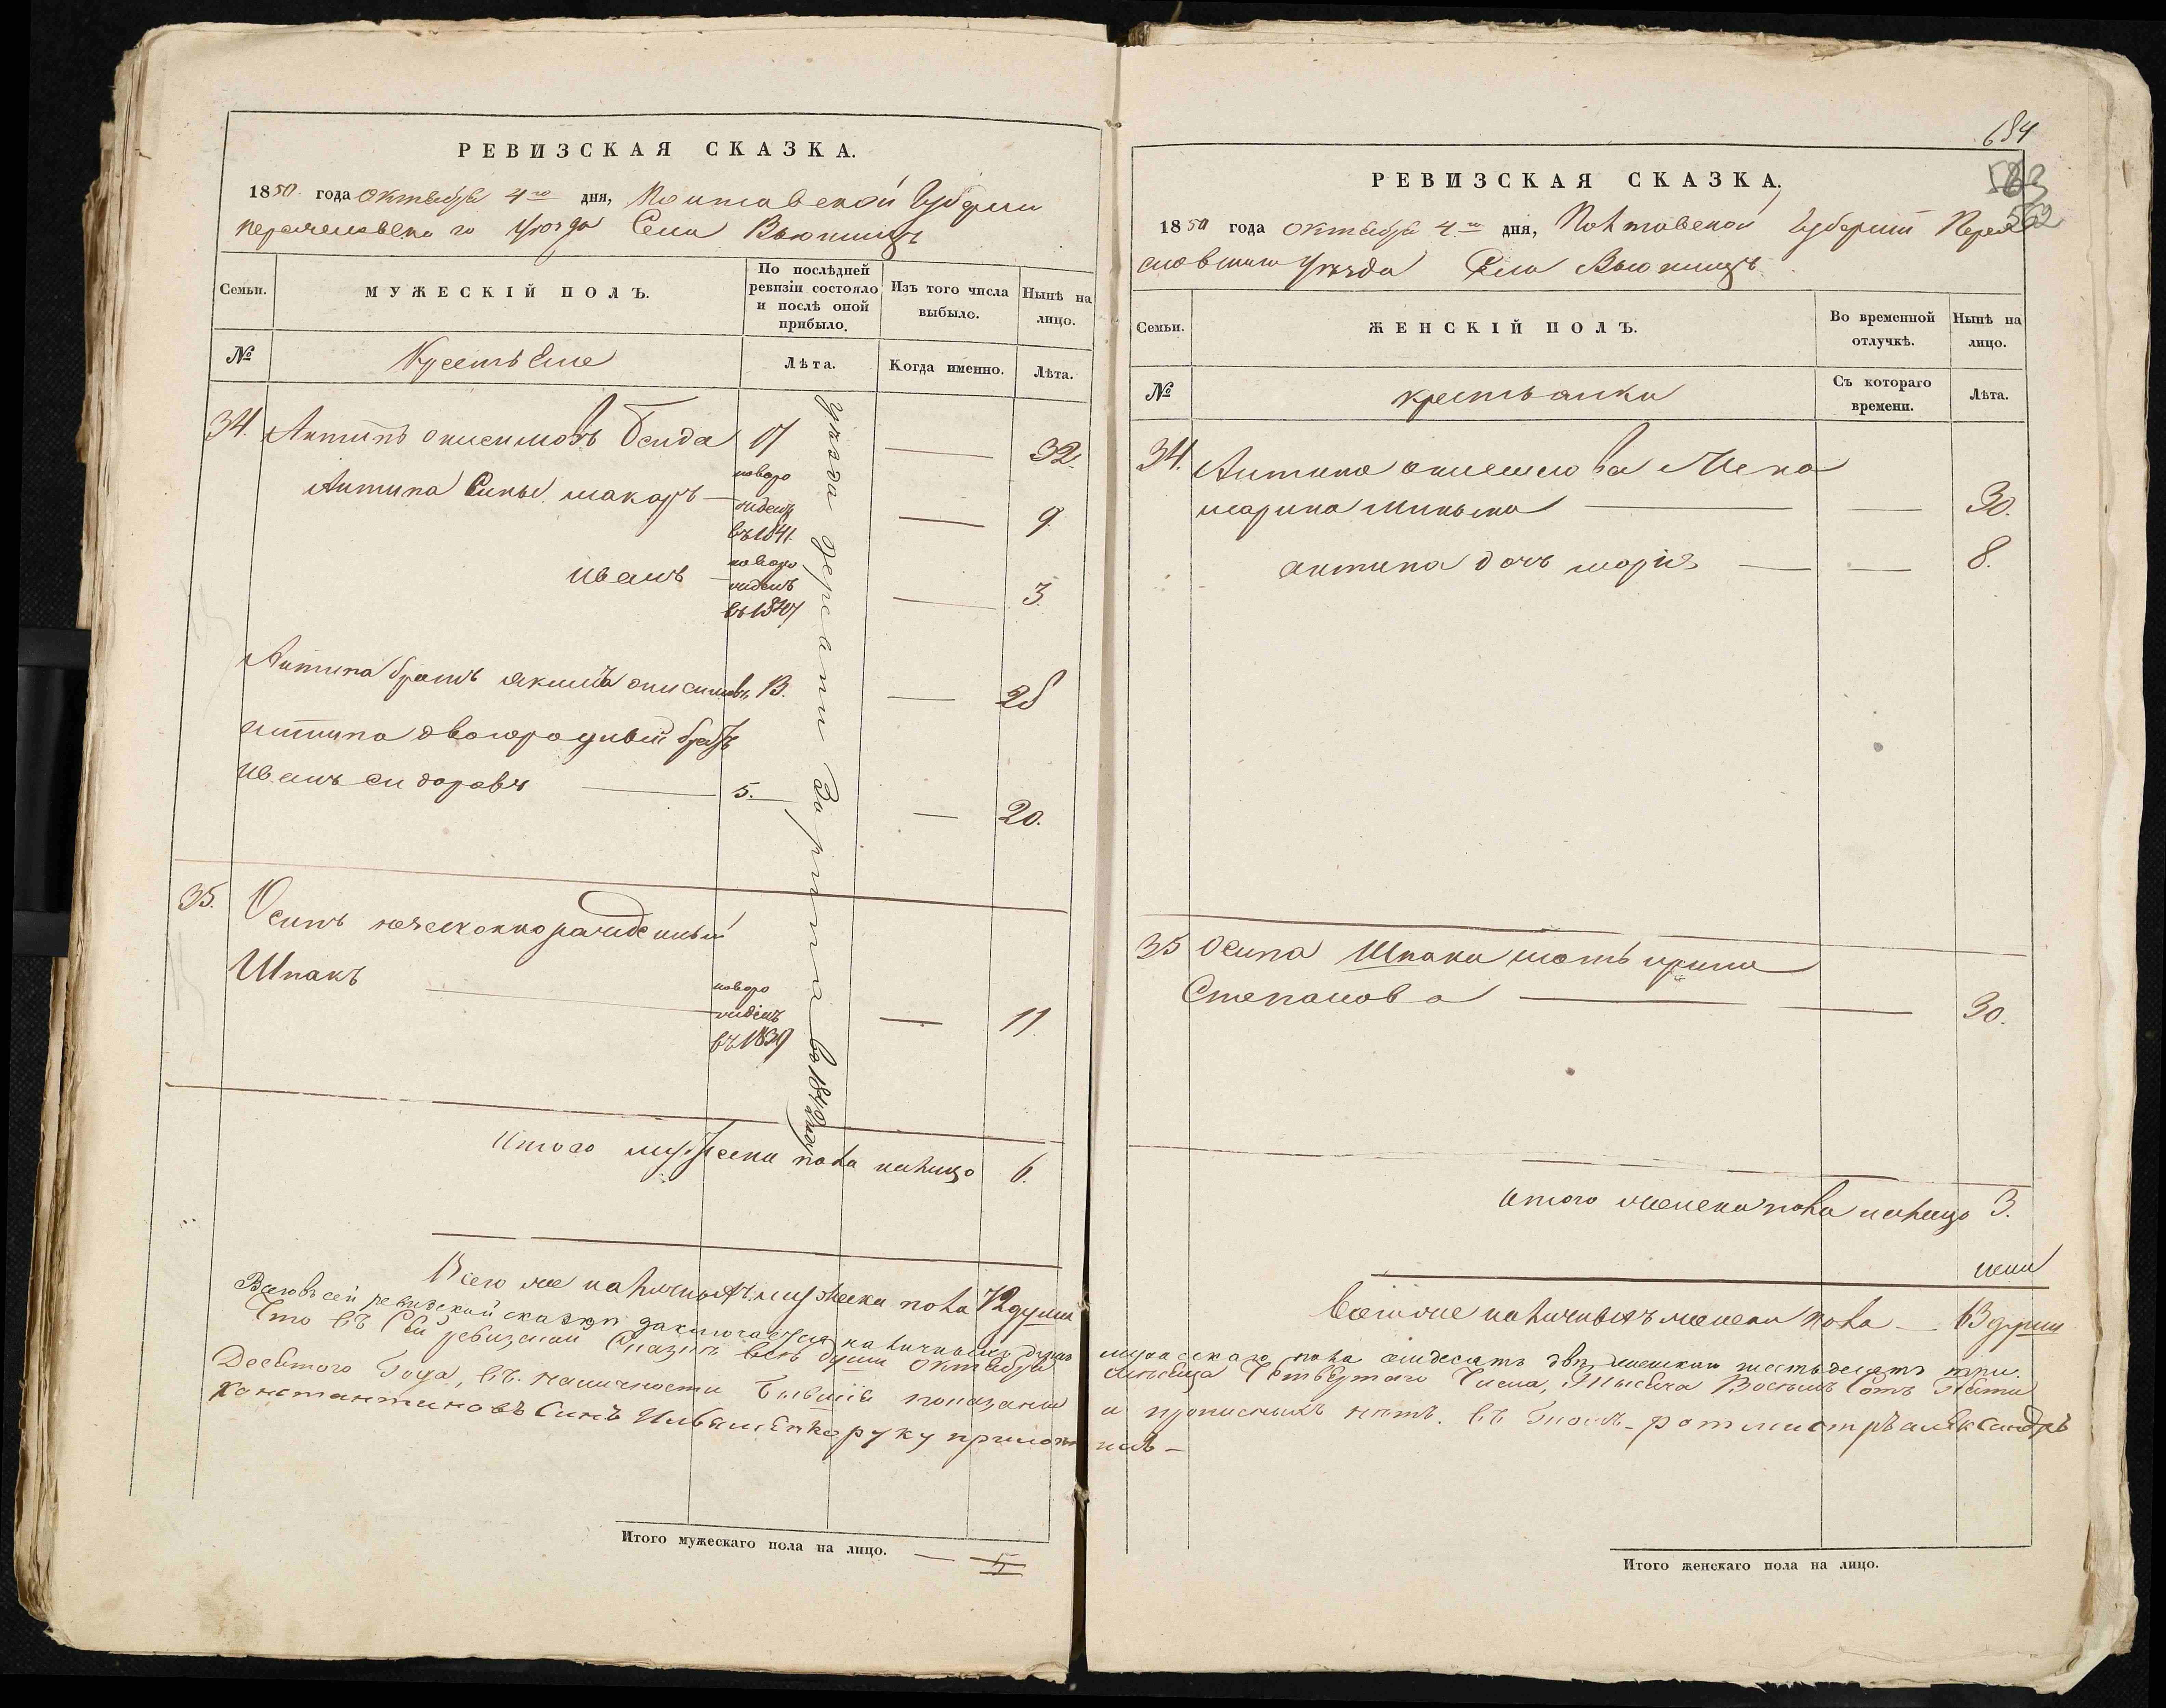 РЕВИЗСКАЯ СКАЗКА.
1850 года Октября 4го дня, Полтавской Губерніи
Переяславскаго уѣзда Села Вьюнищъ
Семьи.
МУЖЕСКІЙ ПОЛЪ.
По послѣдней ревизіи состояло и послѣ оной прибыло.
Изъ того числа выбыло.
Нынѣ на лицо.
№
Крестьяне
Лѣта.
Когда именно.
Лѣта.
34. Антипъ онисимовъ Бенда 17 — 32.
Антипа Сыны макаръ — новоро
жденъ
въ 1841. — 9.
иванъ — новоро
жденъ
въ 1847 — 3.
Антипа братъ якимъ онисимовъ 13. — 28
антипа двоюродный братъ
иванъ сидоровъ — 5. — 20.
35. Осипъ незаконнорожденный
Шпакъ — новоро
жденъ
въ 1839 — 11
Итого мужеска пола налицо 6.
Всего же наличныхъ мужеска пола 72 души
Всего въ сей ревизской сказкѣ заключается наличныхъ душъ
Что въ Сей ревизской Сказкѣ всѣ души Октября
Десятого Года, въ наличности бывшіе показаны
Константиновъ Сынъ руку приложи
Итого мужескаго пола на лицо. —
684
583
562
РЕВИЗСКАЯ СКАЗКА,
1850 года октября 4го дня, Полтавской Губерніи Перея
славскаго уѣзда Села Вьюнищъ
Семьи.
ЖЕНСКІЙ ПОЛЪ.
Во временной отлучкѣ.
Нынѣ на лицо.
№
крестьянки
Съ котораго времени.
Лѣта.
34. Антипа онисимова Жена
марина — — 30.
антипа дочь марія — — 8.
35 Осипа Шпака мать ирина
Степанова — — 30.
итого женска пола налицо 3.
Всего же наличныхъ женска пола — 63 души
мужескаго пола семдесятъ двѣ женскаго шестьдесятъ три.
мѣсяца Четвертаго Числа, Тысяча Восемь Сотъ Пяти
и прописныхъ нѣтъ. въ томъ — ротмистръ александръ
лъ —
Итого женскаго пола на лицо.